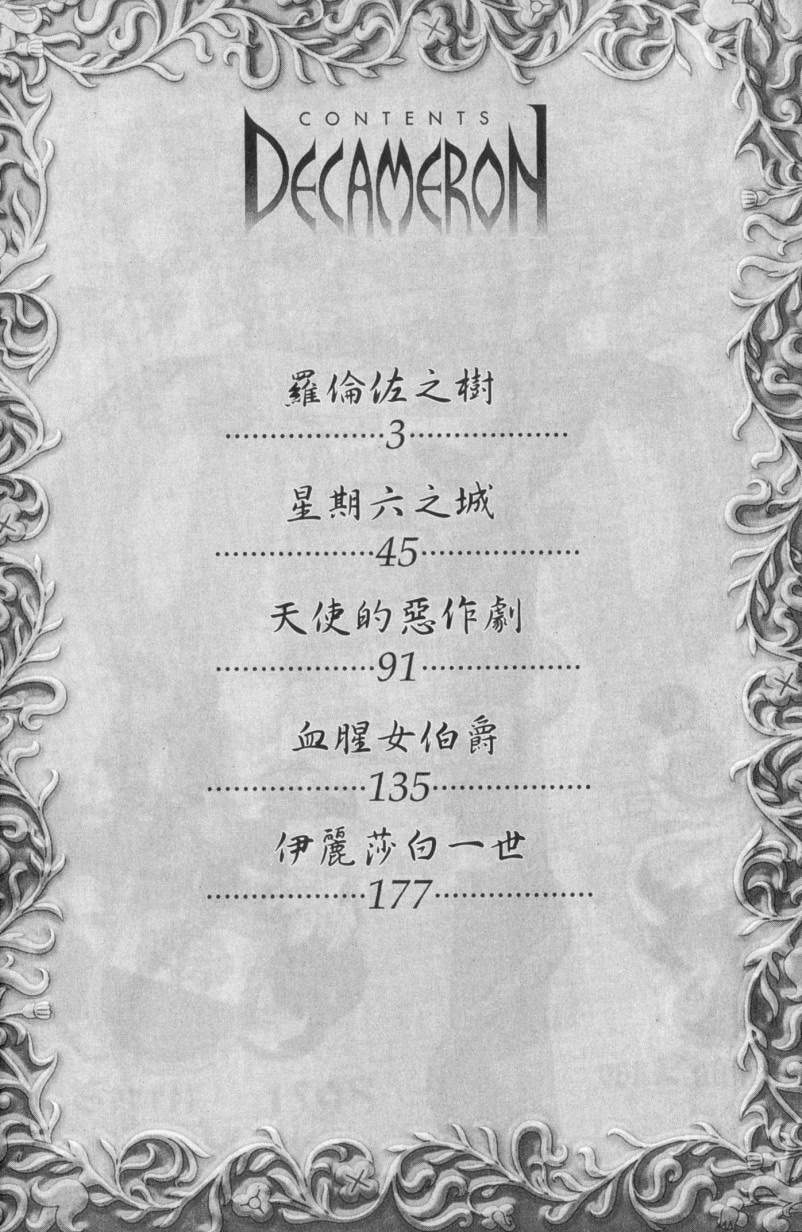 CONTENTS
DECAMERON
羅倫佐之樹
………………3………………
星期六之城
………………45………………
天使的惡作劇
………………91………………
血腥女伯爵
………………135………………
伊麗莎白一世
………………177………………